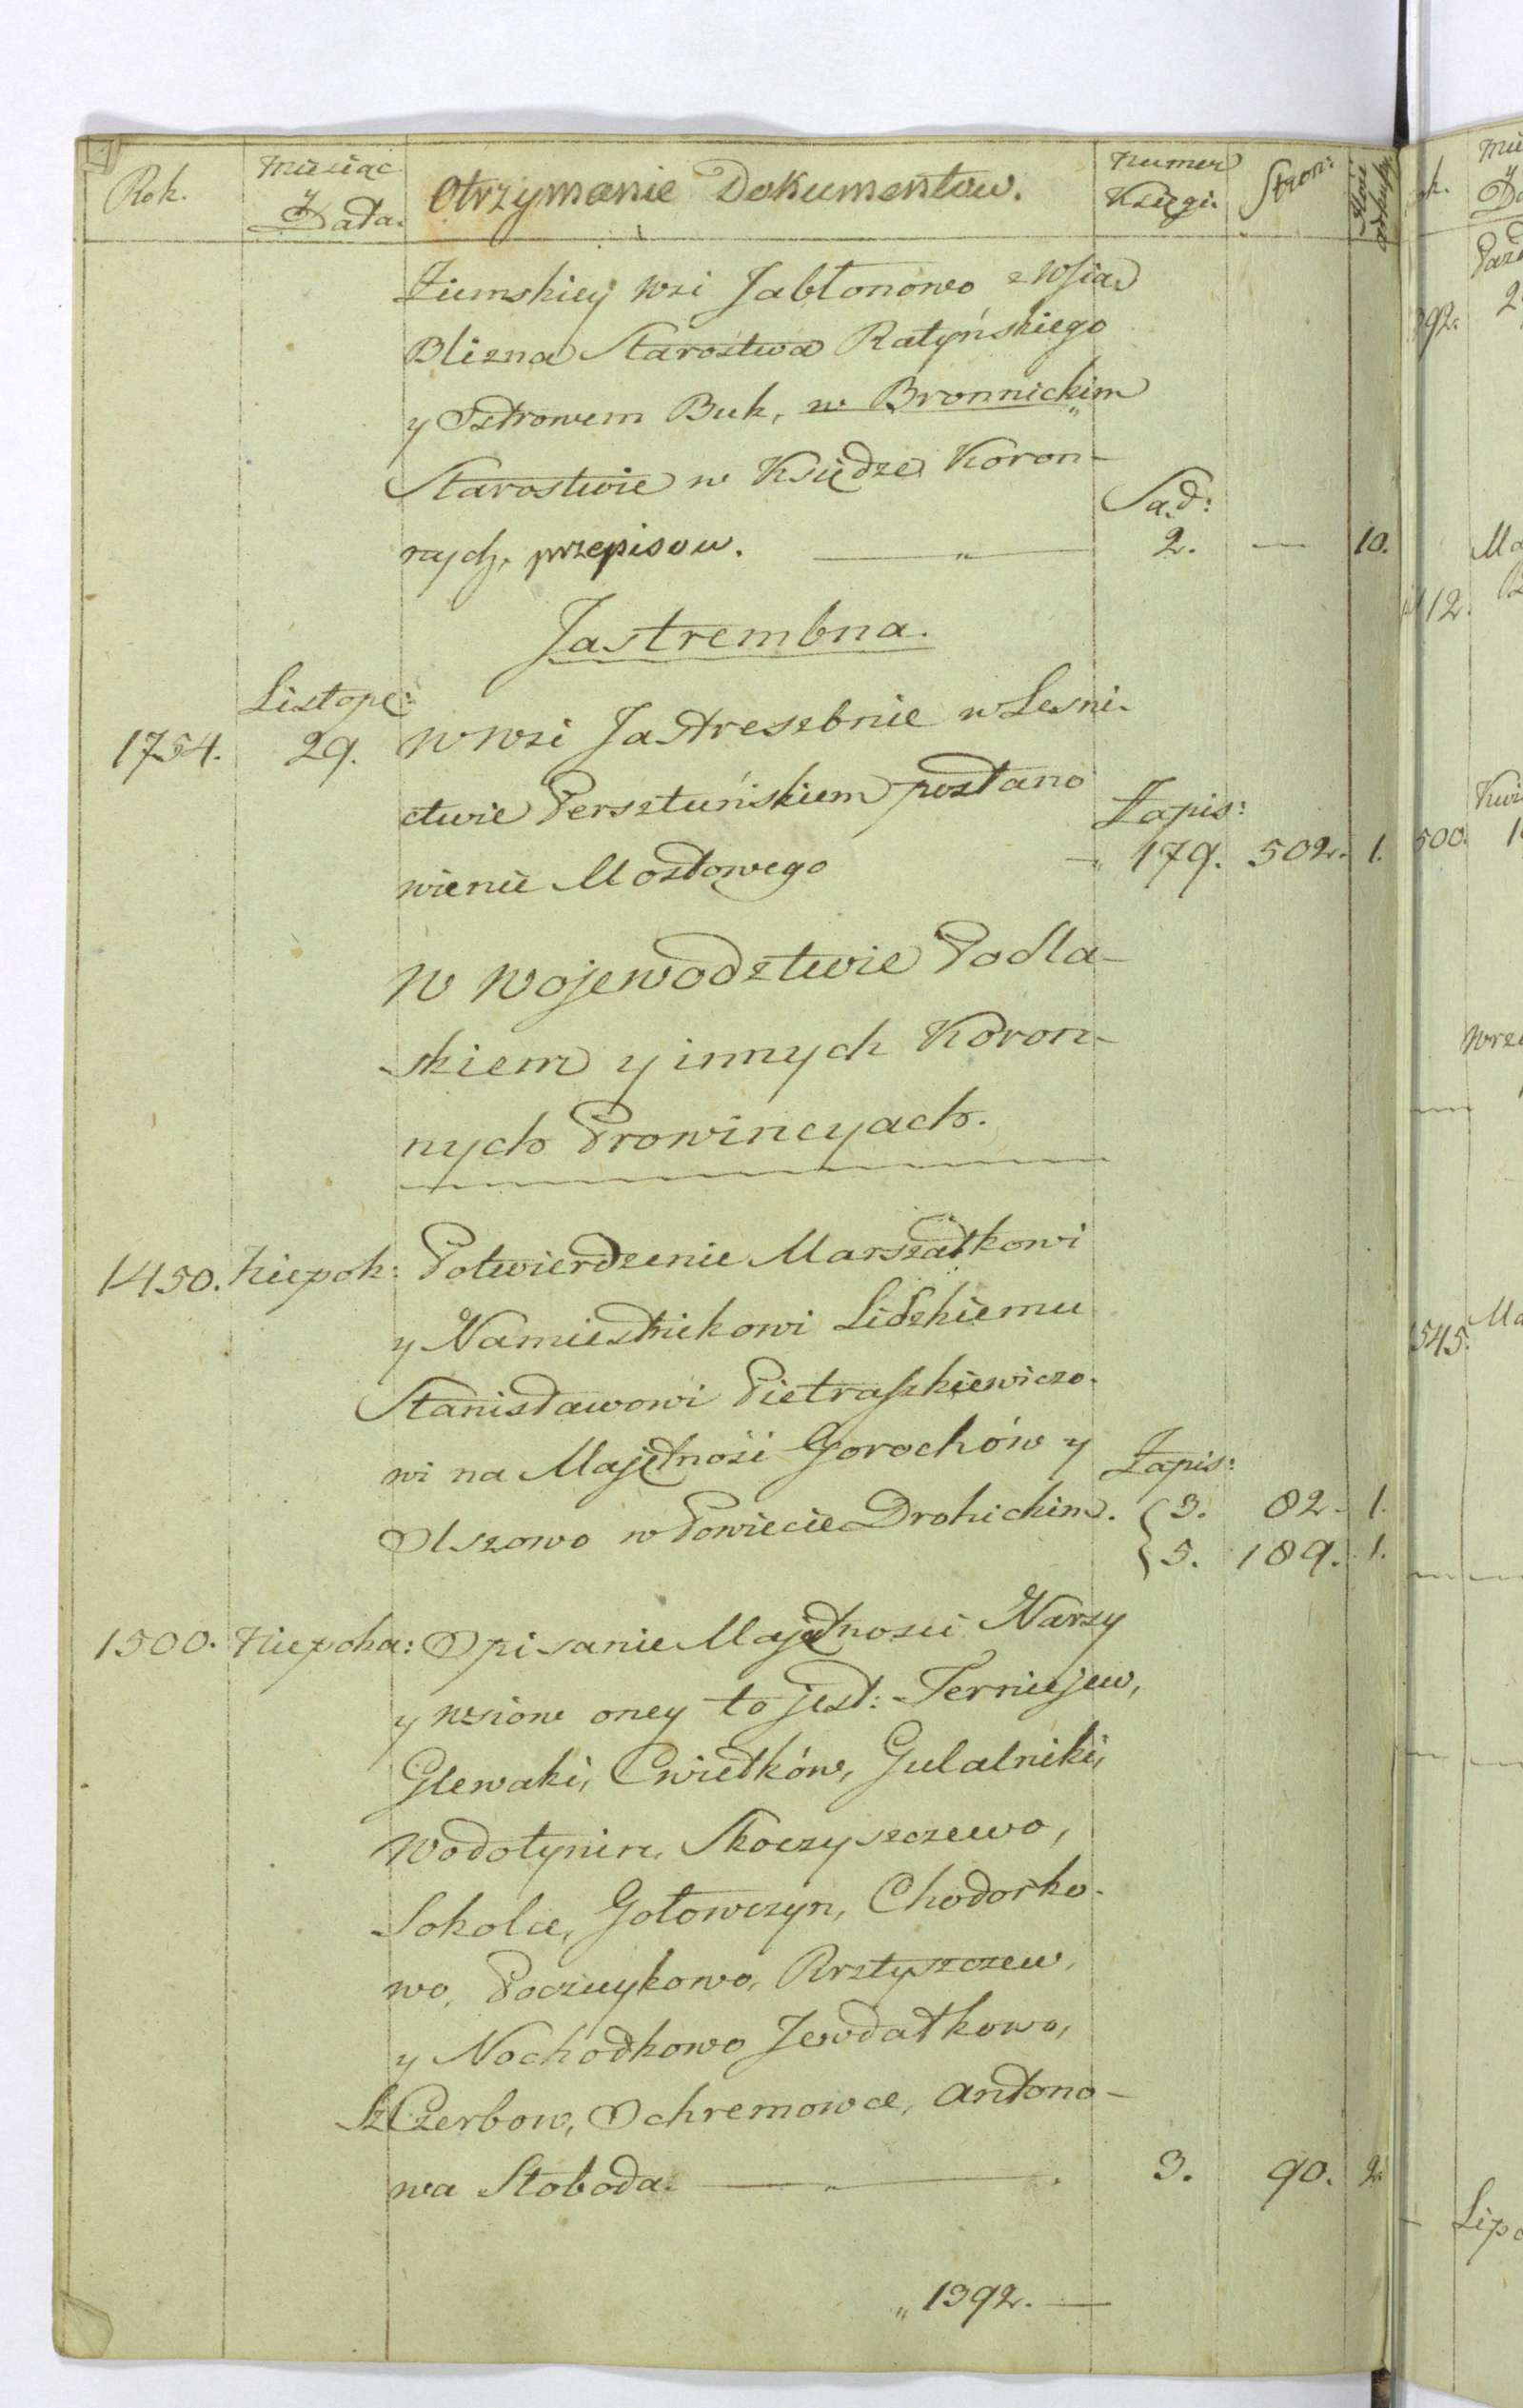 Rok. Miesiąc y Data. Otrzymanie Dokumentow. Numer Księgi. Stron:
Ziemskiey wsi Jabłonowo z wsią
Blizna Starostwa Ratyńskiego
y Ostrowem Buk, w Bronnickim
Starostwie w Księdze Koron-
nych, przepisow. — „ — Sąd: 2. — 10.
Jastrembna.
1754. Listop: 29. W wsi Jastresebnie w Lesni-
ctwie Persztuńskiem postano
wienie Mostowego — „ Zapis: 179. 502. 1.
W Wojewodztwie Podla-
skiem y innych Koron-
nych Prowincyach.
1450. Niepok: Potwierdzenie Marszałkowi
y Namiestnikowi Lidzkiemu
Stanisławowi Pietraszkiewiczo-
wi na Majętność Gorochów y
Olszowo w Powiecie Drohickim. Zapis: 3. 82. 1.
5. 189. 1.
1500. Niepoka: Opisanie Majętnosci Narzy
y wsiow oney to jest: Terniejew,
Glewaki, Cwietków, Gulalniki,
Wodotynin, Skoczyszczewo,
Sokolce, Gołowczyn, Chodorko-
wo, Poczuykowo, Rsztyszczew,
y Nochodkowo Jewdatkowo,
Szczerbow, Ochremowce, Antono-
wa Słoboda. — „ — 3. 90. 2.
„ 1392. —